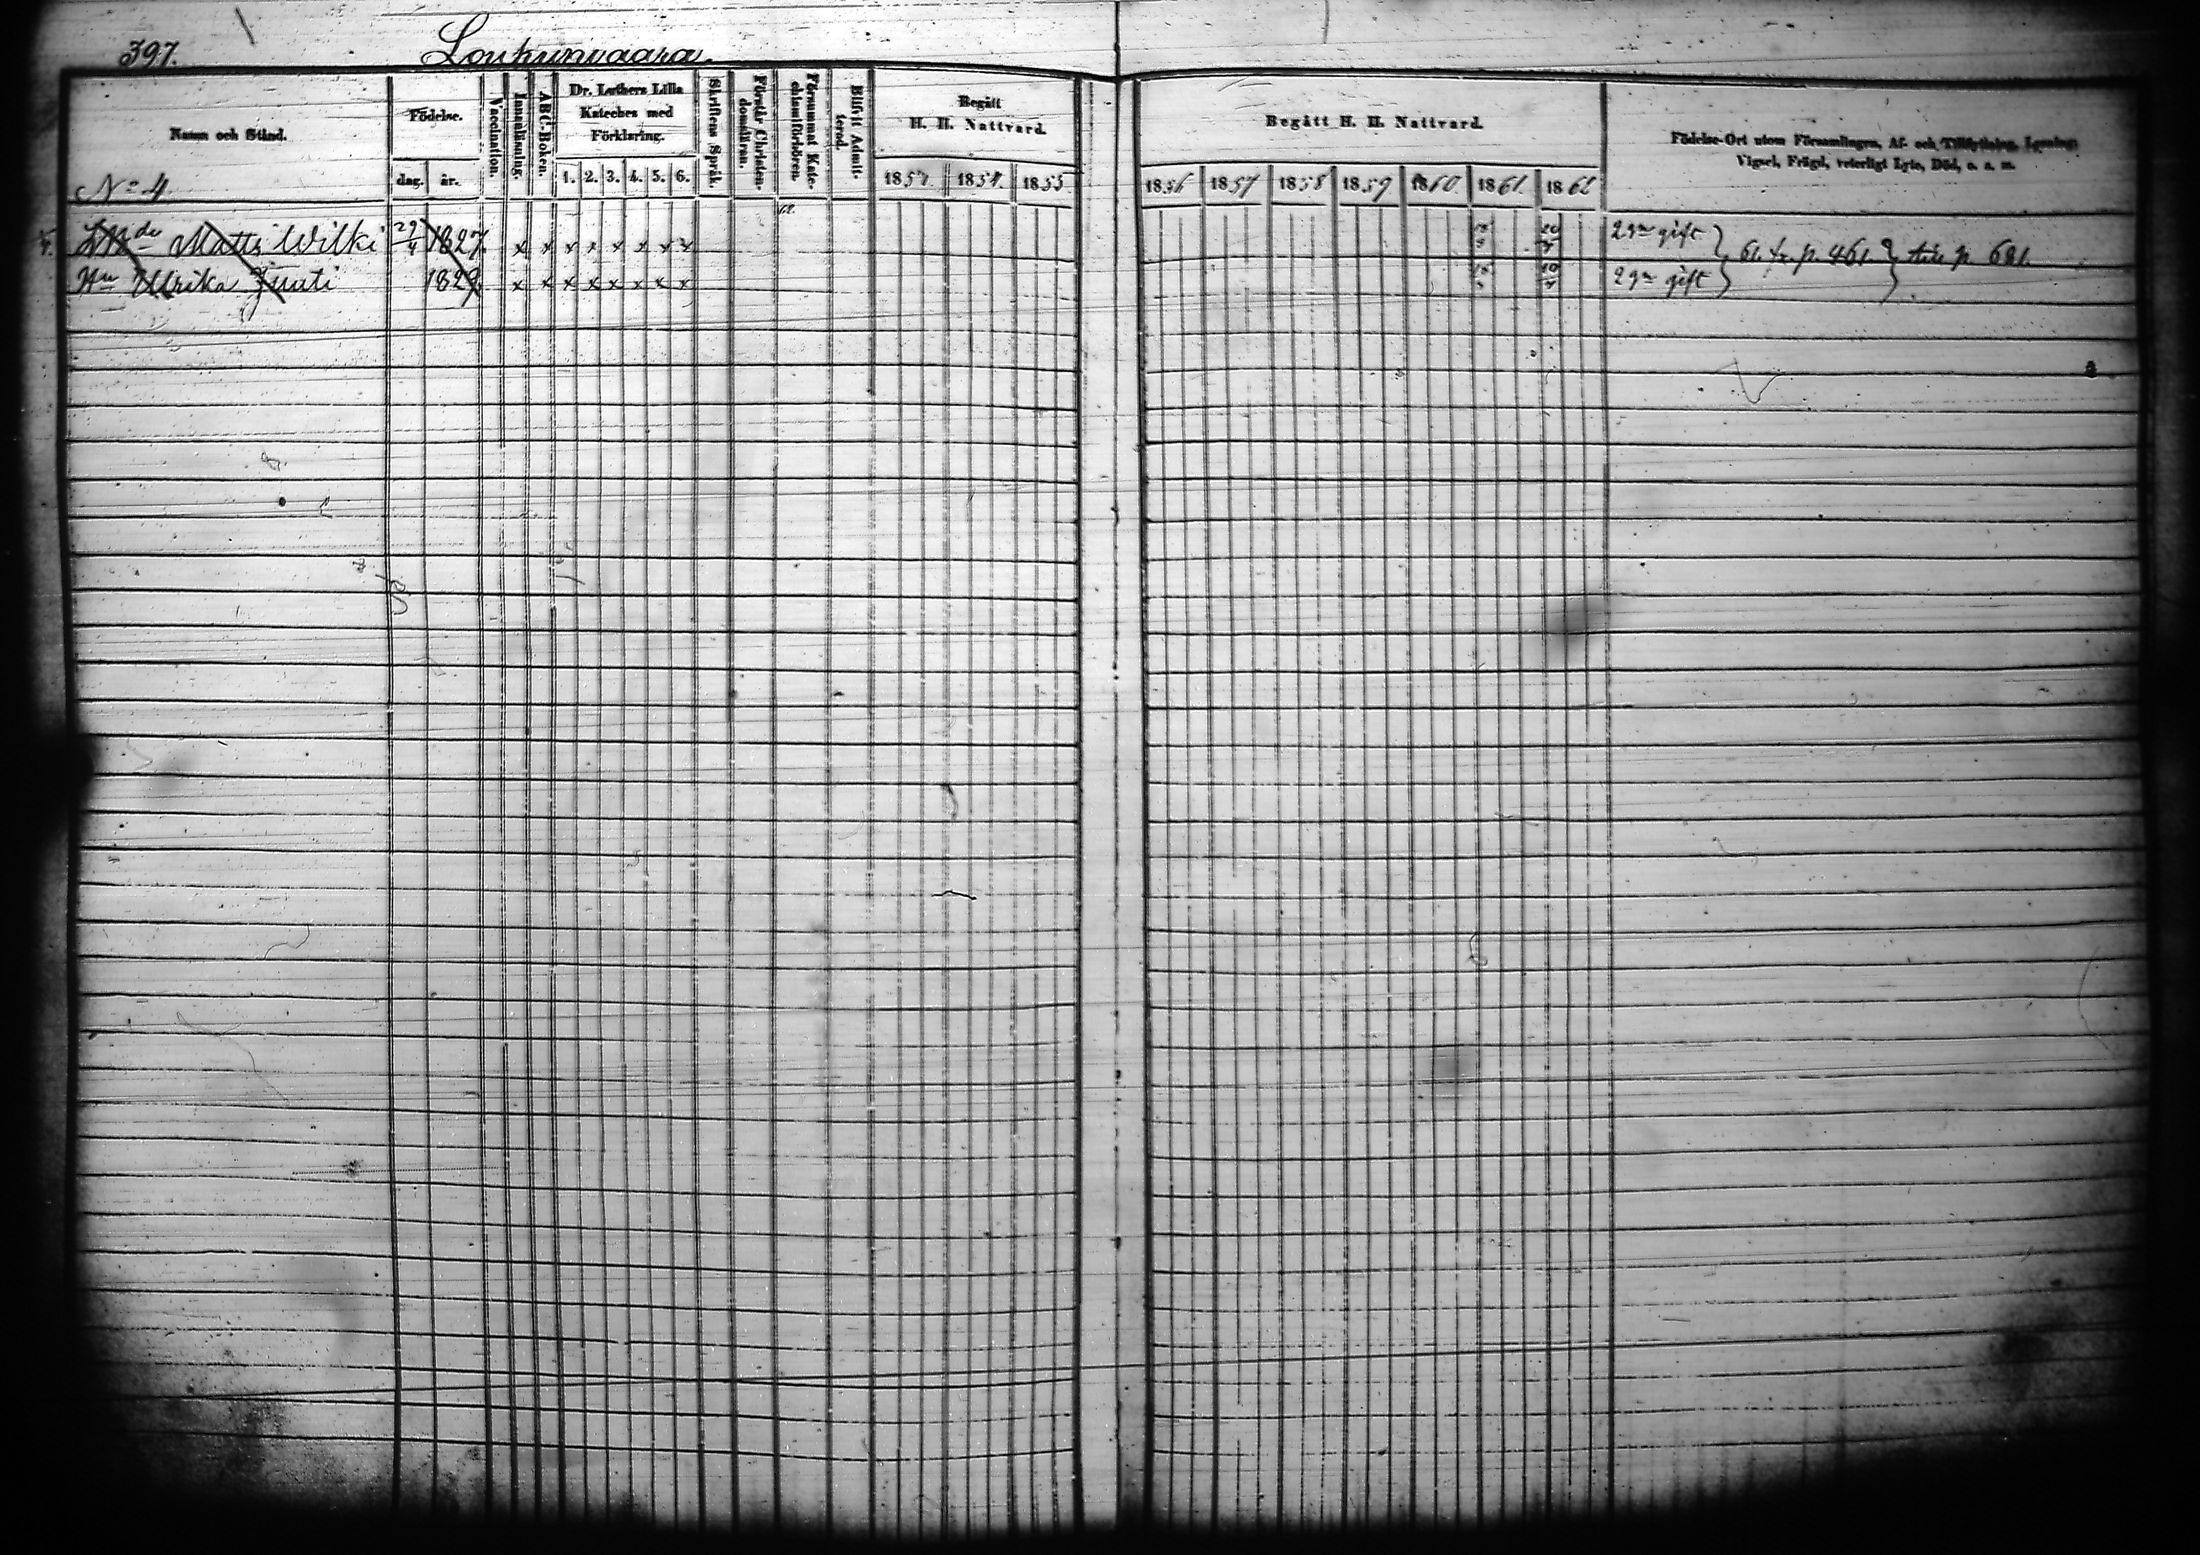 397. Loukunvaara.
Namn och Stånd.
Födelse.
dag. år.
Vaccination.
Innanläsning.
ABC-Boken.
Dr. Luthers Lilla Kateches med Förklaring.
1. 2. 3. 4. 5. 6.
Skriftens Språk.
Förstår Christendomsläran.
Försummat Katechismiförhören.
Blifvit Admitterad.
Begått H. H. Nattvard.
1854. 1855
Begått H. H. Nattvard.
1856 1857 1858 1859 1860 1861 1862
Födelse-Ort utom Församlingen, Af- och Tillflyttning, Lysning,
Vigsel, Frägd, veterligt Lyte, Död, o. s. m.
No 4
Matts Wilki 29/4 1827. x x x x x x x x 2 gn gift
61. fr. p. 461. till p. 681.
Hu Ulrika Juuti 1829. x x x x x x x x 2 gn gift